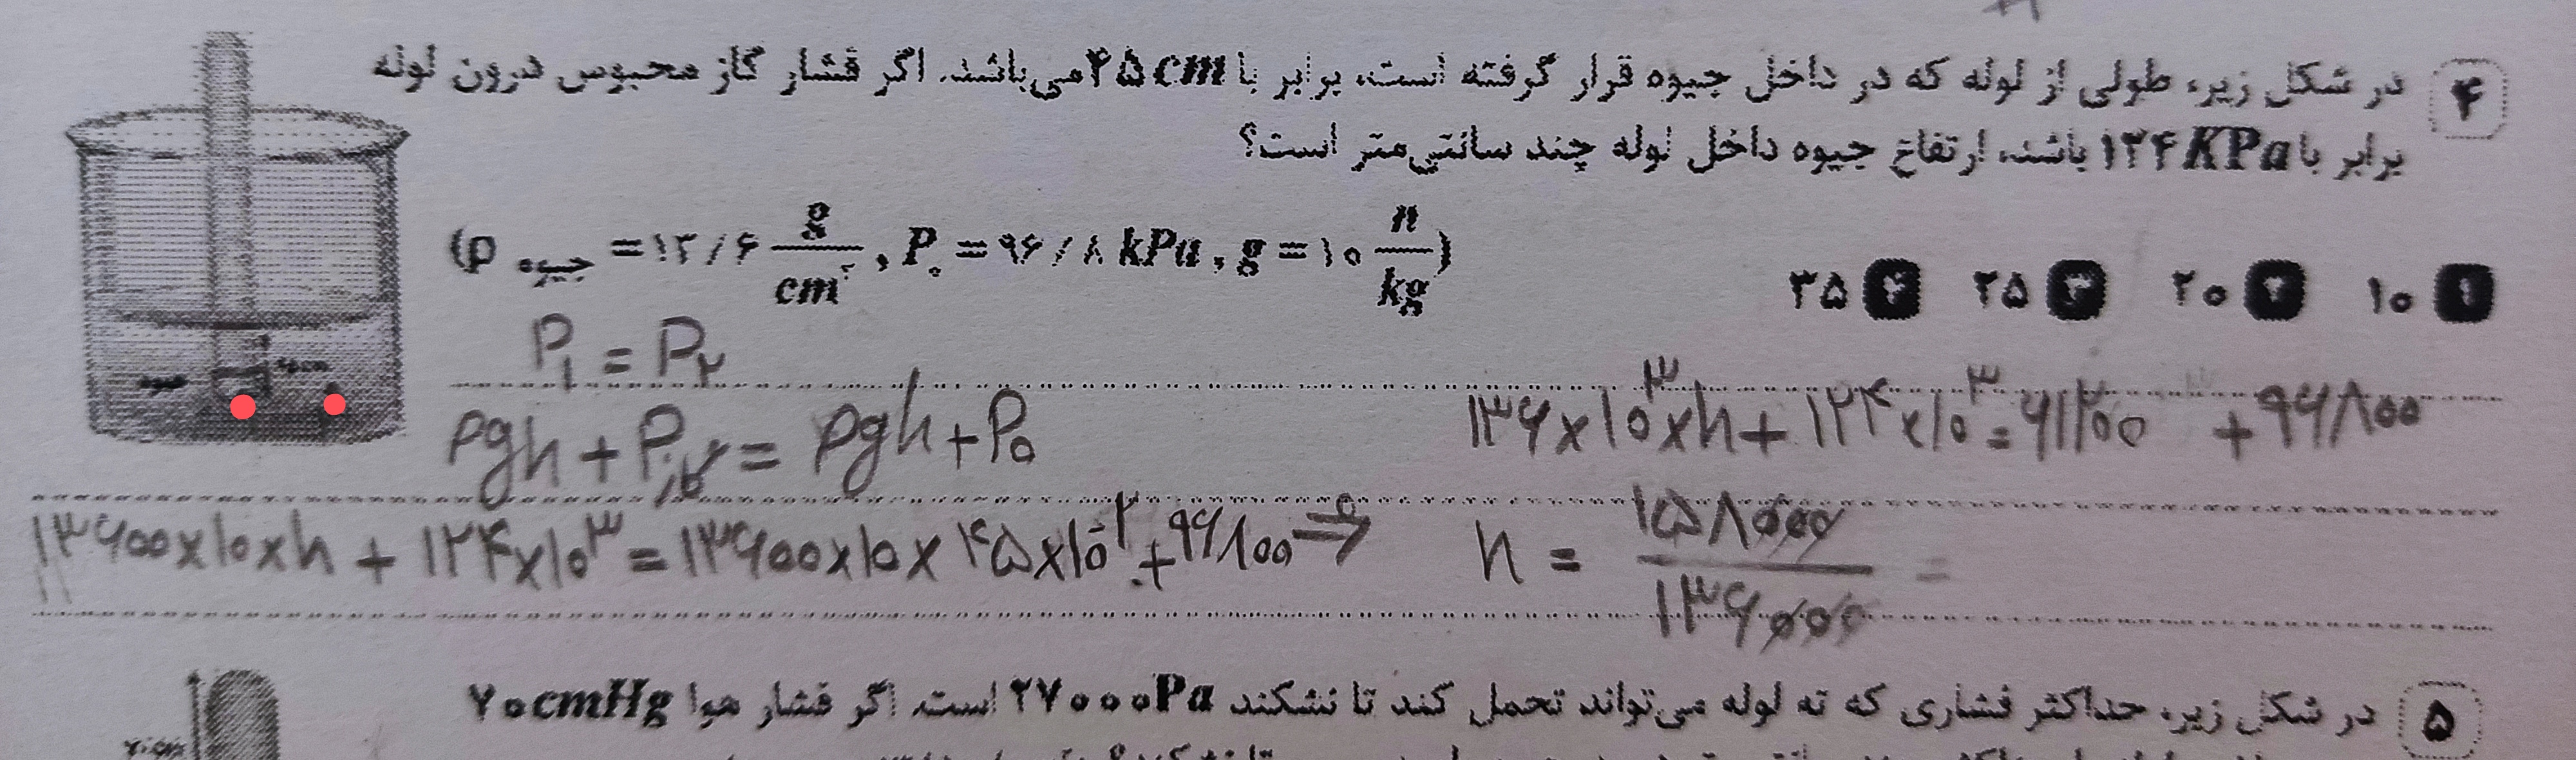 ۴ در شکل زیر، طولی از لوله که در داخل جیوه قرار گرفته است، برابر با ۴۵cm می‌باشد. اگر فشار گاز محبوس درون لوله
برابر با ۱۲۴KPa باشد، ارتفاع جیوه داخل لوله چند سانتی‌متر است؟
(ρ جیوه = ۱۳/۶ g/cm³, P₀ = ۹۶/۸ kPa, g = ۱۰ n/kg)
۱ ۱۰ ۲ ۲۰ ۳ ۲۵ ۴ ۳۵
P۱ = P۲
ρgh + Pگاز = ρgh + P₀
۱۳۶۰۰×۱۰×h + ۱۲۴×۱۰³ = ۱۳۶۰۰×۱۰×۴۵×۱۰⁻² + ۹۶۸۰۰ ⇒
۱۳۶×۱۰³×h + ۱۲۴×۱۰³ = ۶۱۲۰۰ + ۹۶۸۰۰
h = ۱۵۸۰۰۰/۱۳۶۰۰۰ =
جیوه
۴۵cm
۵ در شکل زیر، حداکثر فشاری که ته لوله می‌تواند تحمل کند تا نشکند ۲۷۰۰۰Pa است. اگر فشار هوا ۷۰cmHg